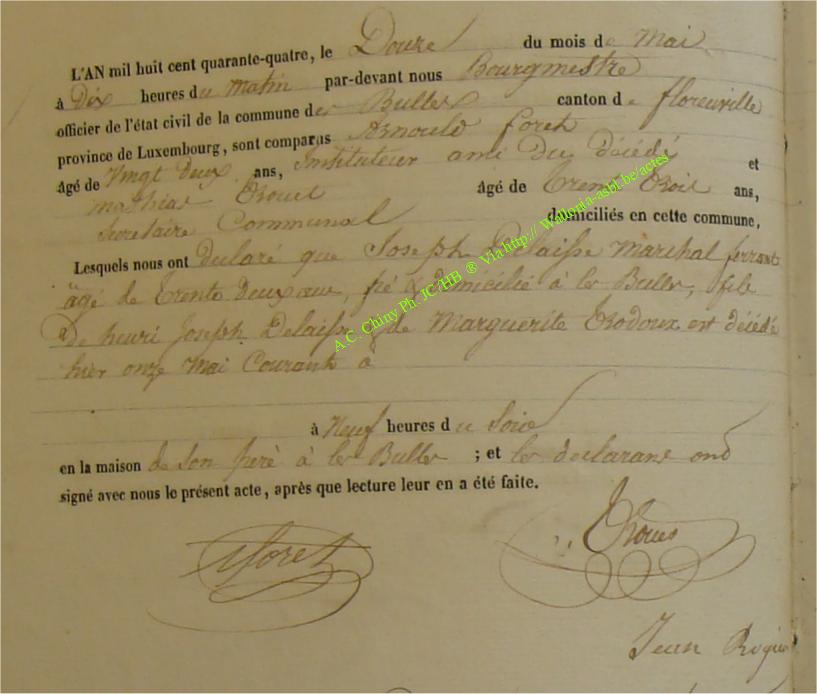 L'AN mil huit cent quarante-quatre, le Douze du mois de Mai
à Dix heures du Matin par-devant nous Bourgmestre
officier de l'état civil de la commune des Bulles canton de florenville
province de Luxembourg, sont comparus Arnould foret
Agé de Vingt deux ans, Instituteur ami du décédé et
Mathias âgé de Trente Trois ans,
Secretaire Communal domiciliés en cette commune,
Lesquels nous ont declaré que Joseph Delaisse Marechal ferrant
âgé de Trente deux ans, né & domicilié à les Bulles, fils
De henri Joseph Delaisse & de Marguerite est décédé
hier onze Mai Courant à
à Neuf heures du Soir
en la maison de son pere à les Bulles ; et les declarans ond
signé avec nous le présent acte, après que lecture leur en a été faite.
foret
Jean
A.C. Chiny Ph. JC/HB ® Via http:// Wallonia-asbl.be/actes